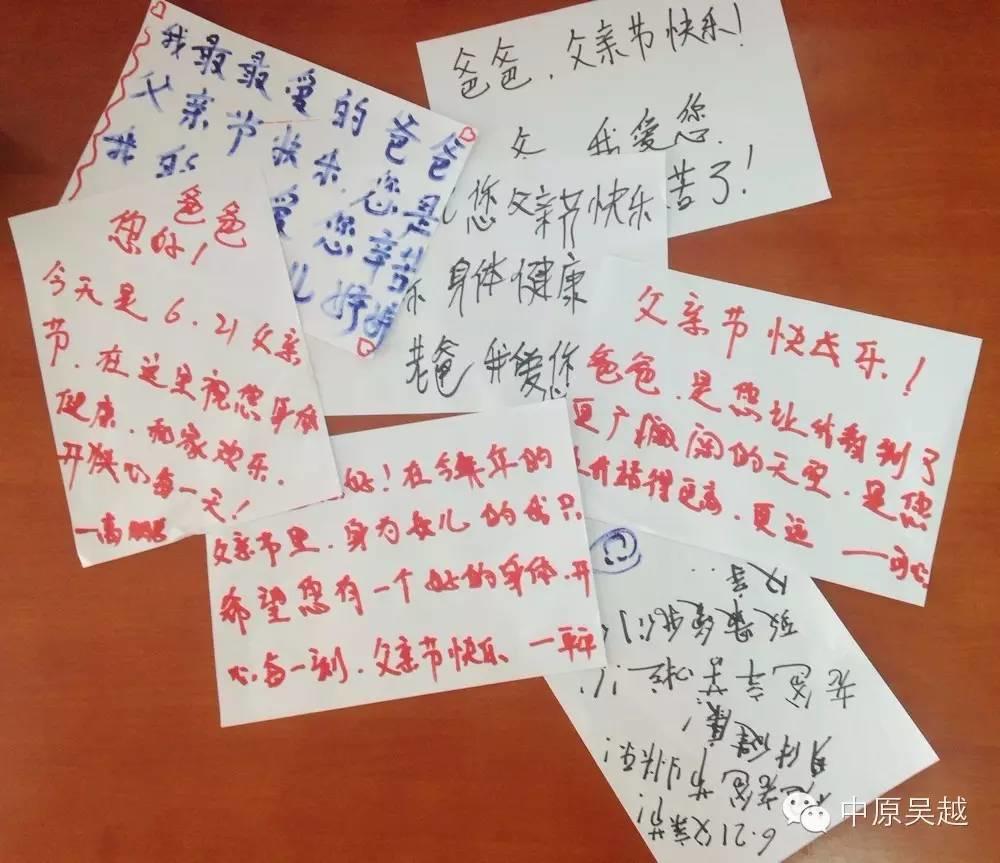 我最最爱的爸爸
父亲节快乐.您是
我
爱您辛苦
儿婷婷
爸爸,父亲节快乐!
我爱您.
苦了!
您父亲节快乐
身体健康
老爸 我爱您
爸爸
您好!
今天是6.21父亲
节.在这里祝您身体
健康.阖家欢乐.
开心的每一天!
父亲节快乐!
爸爸.是您让我看到了
更广阔的天空.是您
更高.更远
好!在今年的
父亲节里.身为女儿的我只
希望您有一个好的身体.开
心每一刻.父亲节快乐
6.21父亲节!
祝老爸节日快乐!
身体健康!
老爸辛苦啦!
致最爱我们的
父亲...
中原吴越